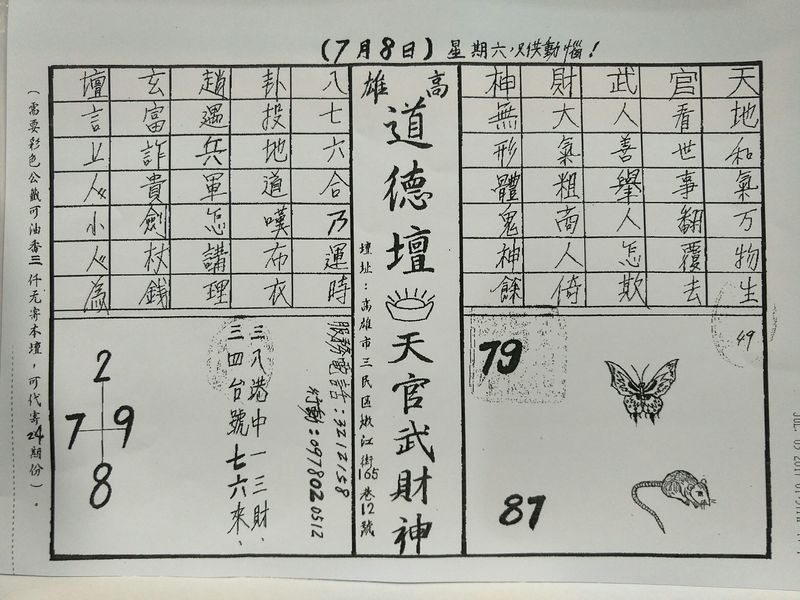 (7月8日)星期六只供動惱!
天地和氣万物生
官看世事翻覆去
武人善舉人怎欺
財大氣粗商人倚
神無形體鬼神餘
49
79
87
高雄
道德壇
天官武財神
壇址:高雄市三民區嫩江街165巷12號
八七六合乃運時
卦投地道嘆布衣
趙遇兵軍怎講理
玄富詐貴劍杖錢
壇言人小人為
服務電話:3212158
行動:0978020512
三八港中一三財,
三四台號七六來,
2
7 9
8
(需要彩色公籤可油香三仟元寄本壇,可代寄24期份)。